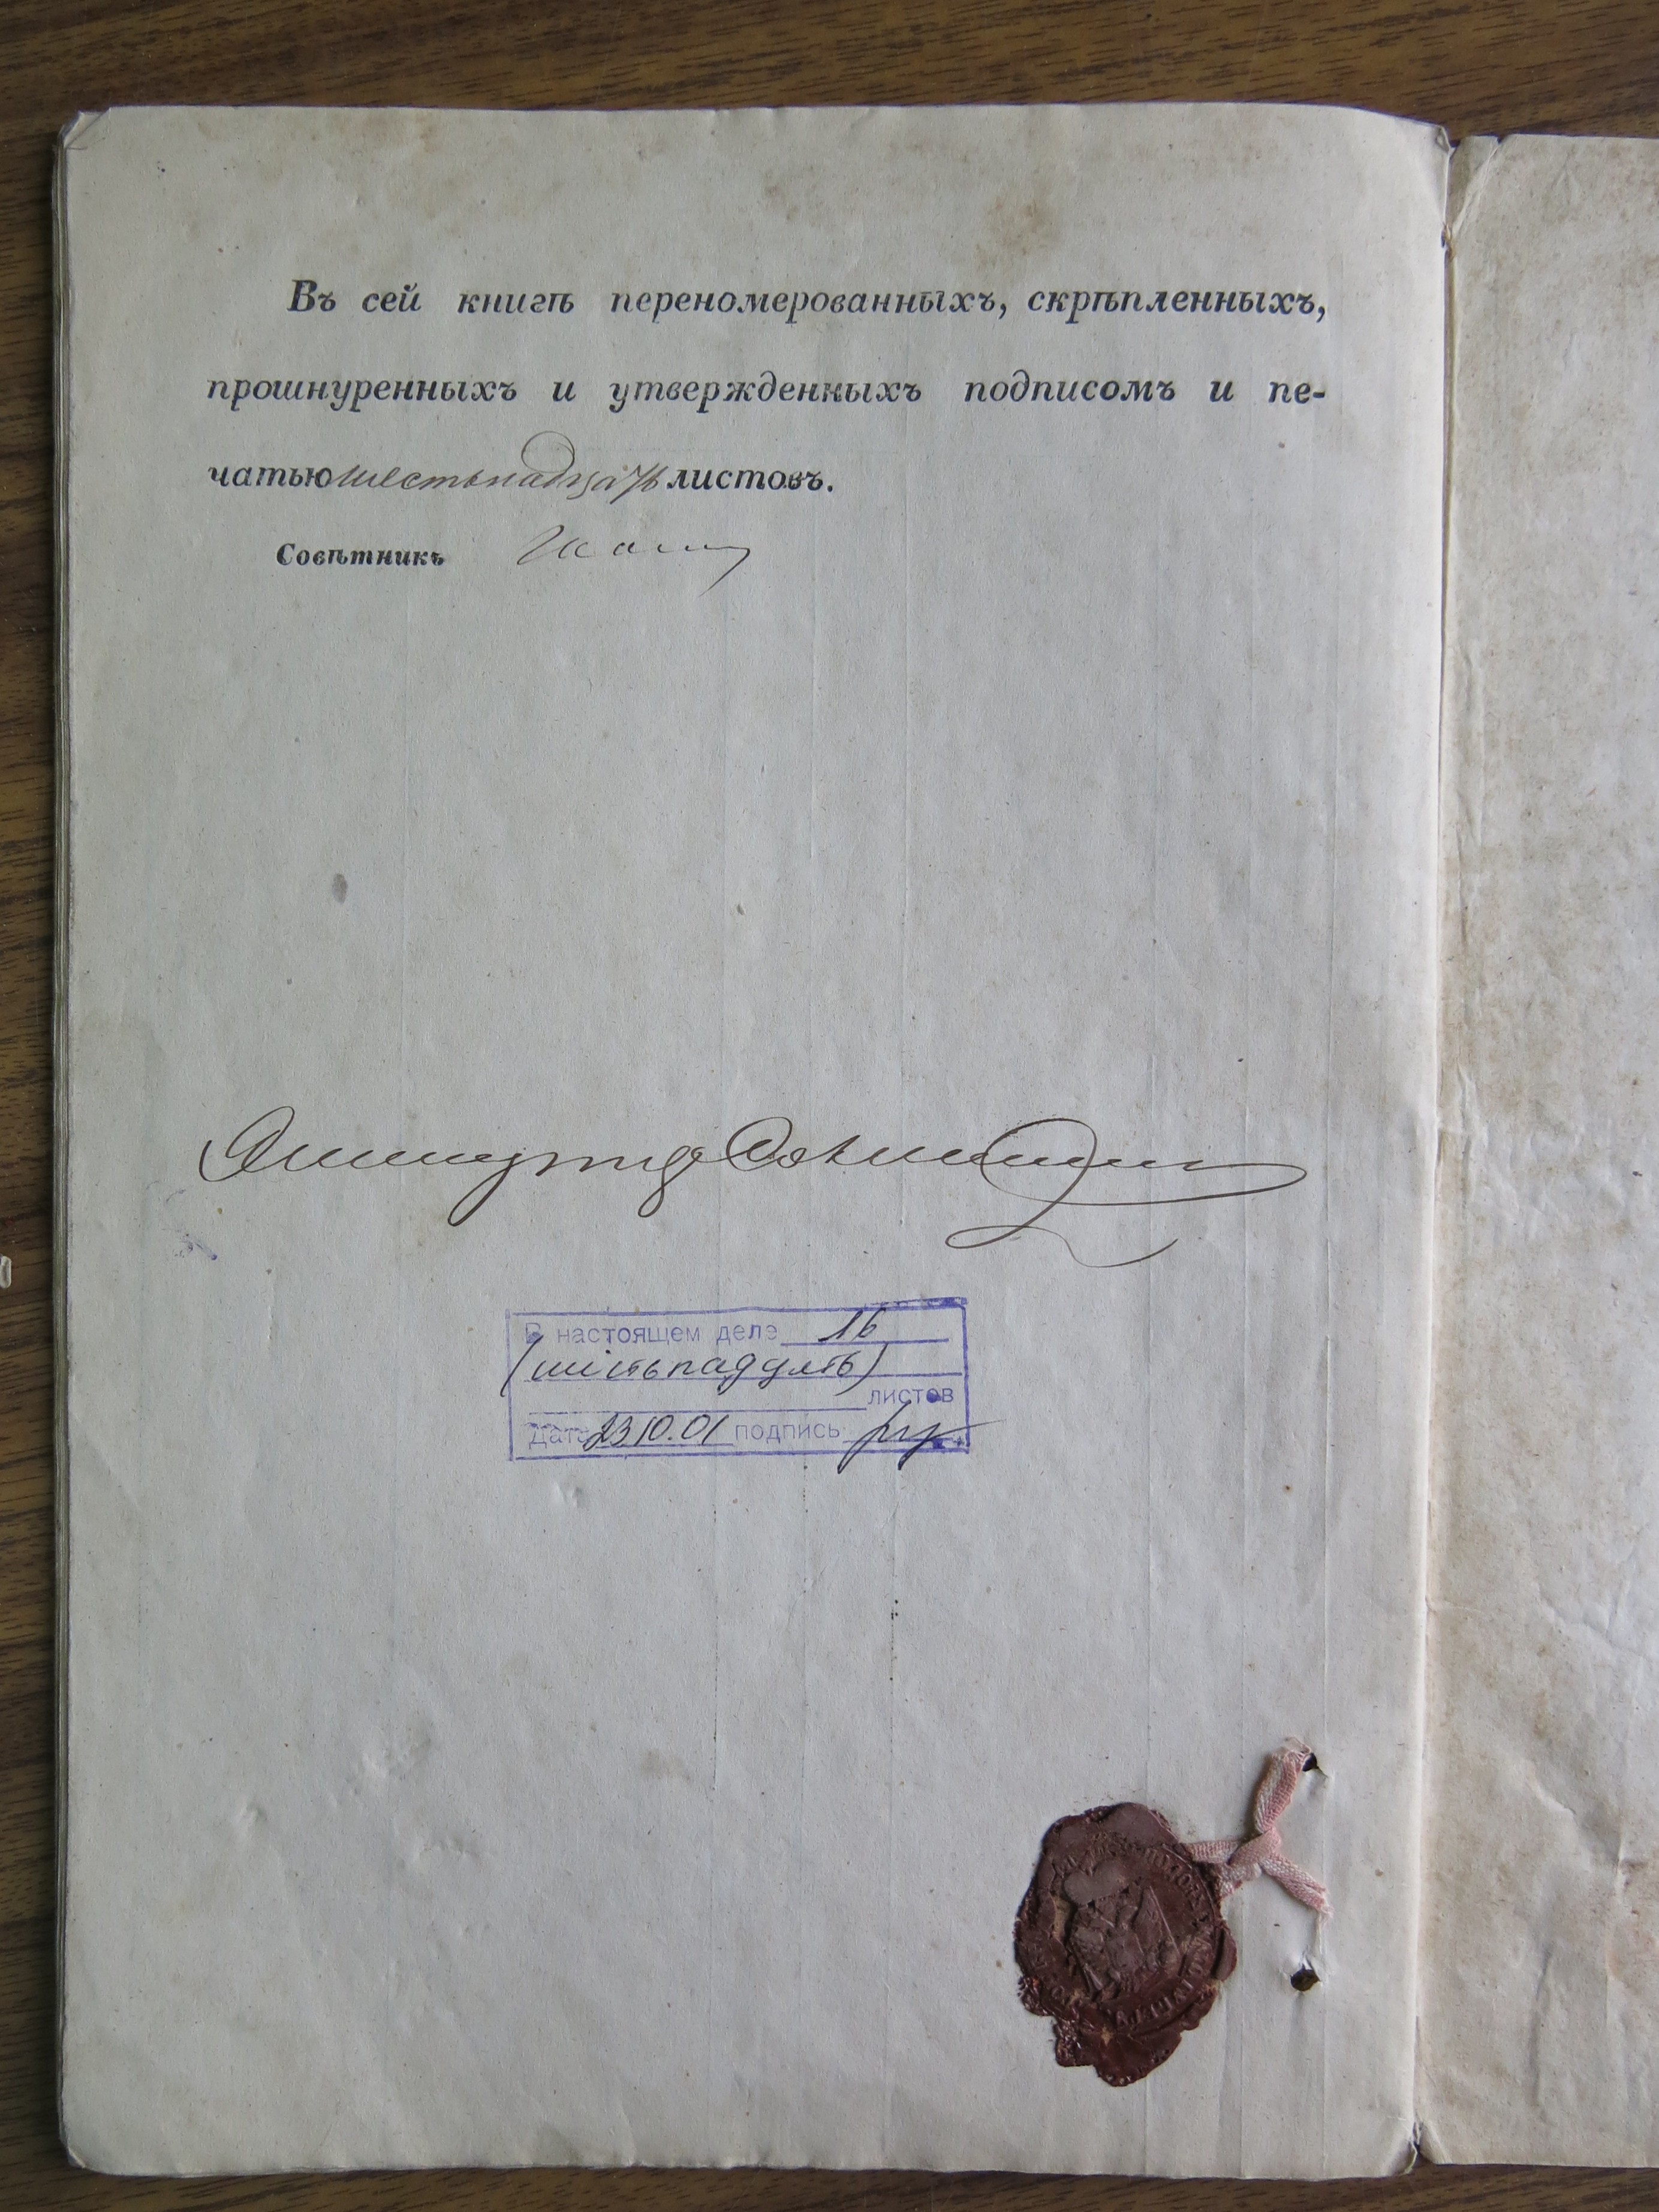 Въ сей книгѣ переномерованныхъ, скрѣпленныхъ,
прошнуренныхъ и утвержденныхъ подписомъ и пе-
чатью шестьнадцать листовъ.
Совѣтникъ
В настоящем деле 16
(шістьнадцять)
листов
Дата 23.10.01 подпись